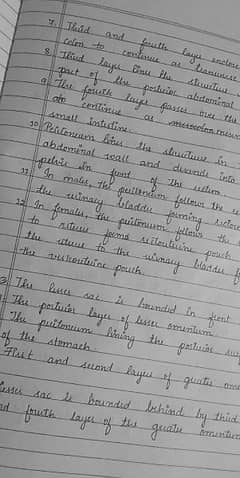 7. Third and fourth layer enclose
colon to continue as transverse
8. Third layer lines the structure
part of the posterior abdominal
9. The fourth layer passes over the
continue as mesocolon
small intestine.
10 Peritoneum lines the structure in
abdominal wall and descends into
pelvis in front of the rectum.
11. In males, the peritoneum follows the
the urinary bladder forming
12. In females, the peritoneum follows the
to uterus forms rectouterine pouch
the uterus to the urinary bladder
the vesicouterine pouch.
The lesser sac is bounded in front
The posterior layer of lesser omentum
The peritoneum lining the posterior
of the stomach.
First and second layer of greater
lesser sac is bounded behind by third
fourth layer of the greater omentum